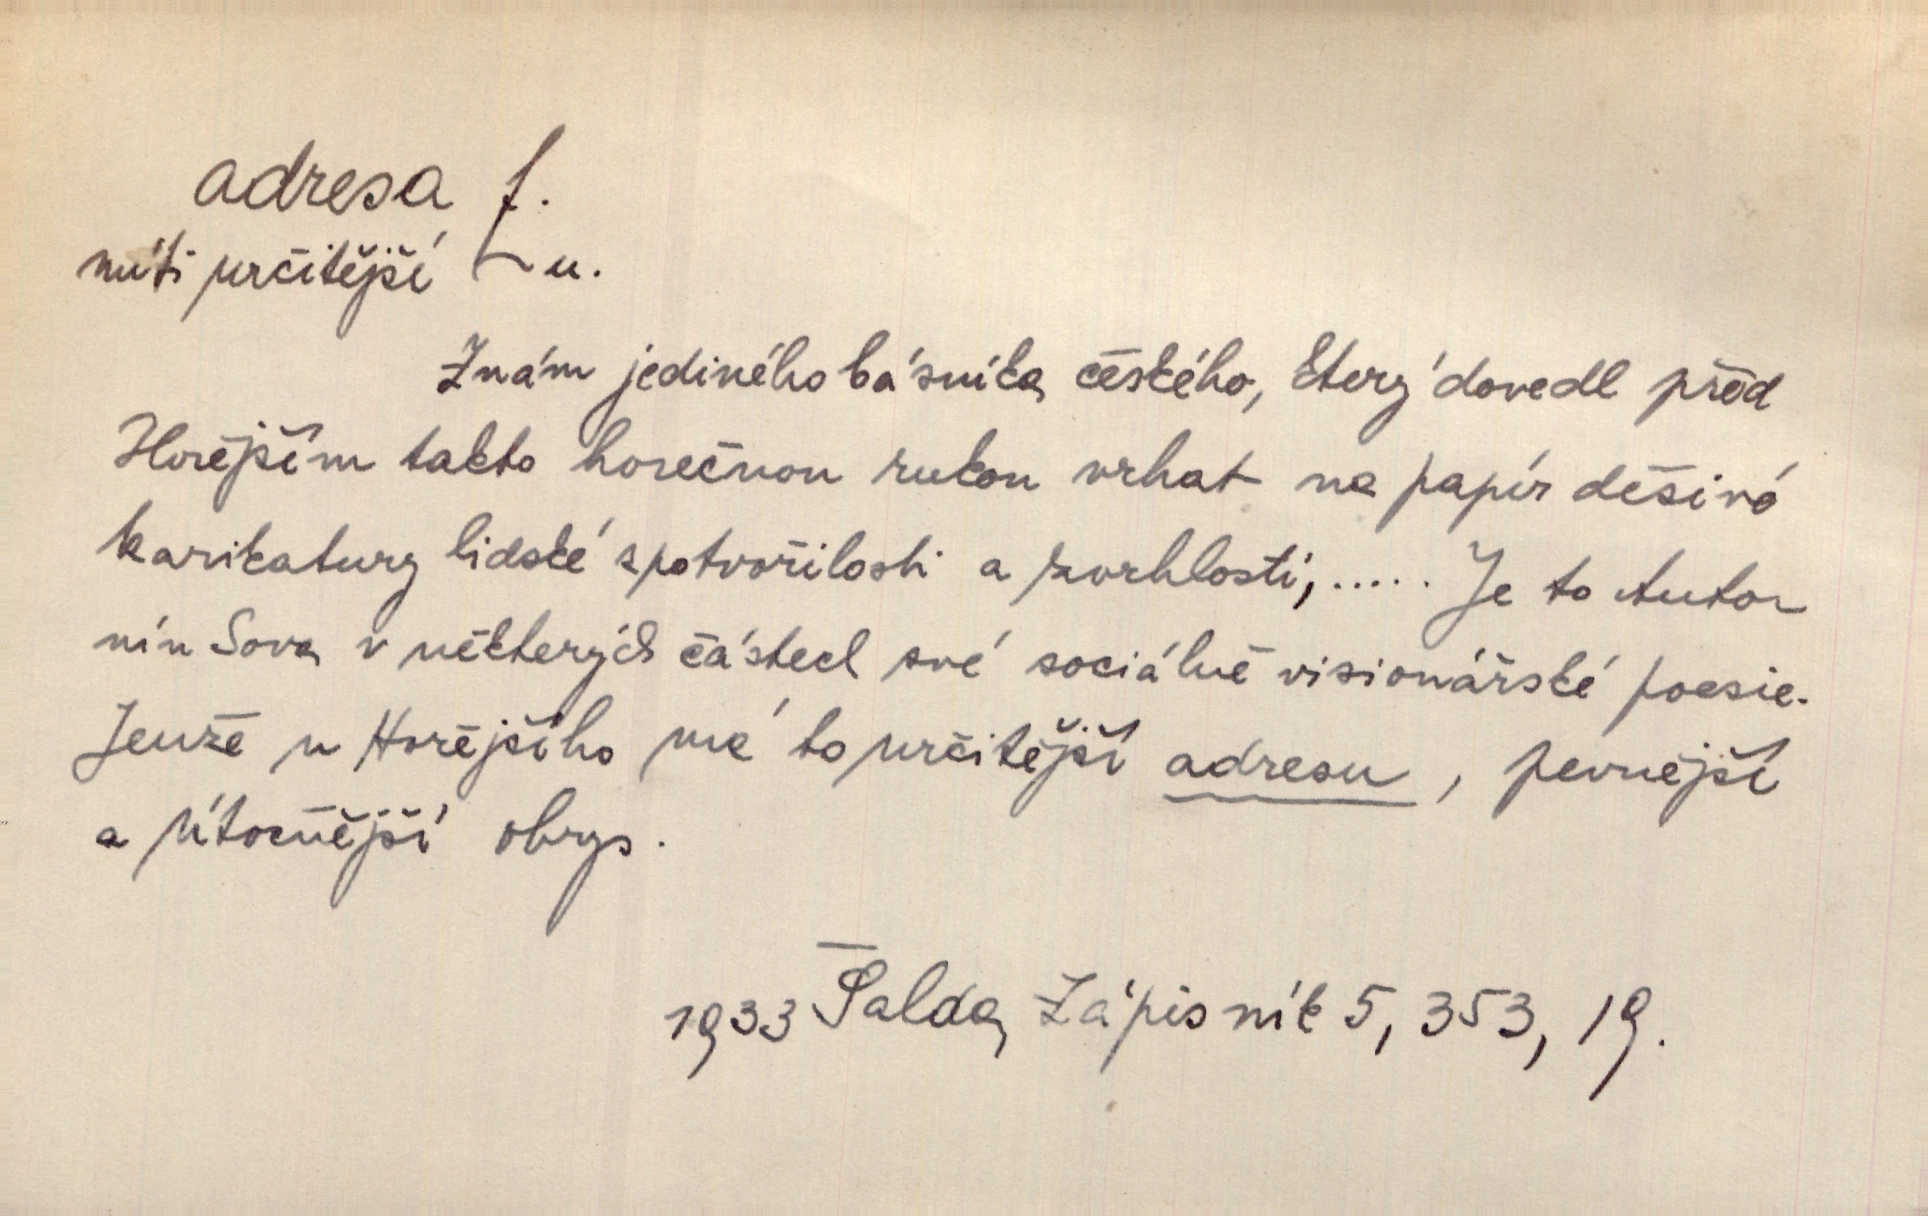 adresa f.
míti určitější ~u.
Znám jediného básníka českého, který dovedl před
Hořejším takto horečnou rukou vrhat na papír děsivé
karikatury lidské zpotvořilosti a zvrhlosti, ..... Je to Anto
nín Sova v některých částech své sociálně visionářské poesie.
Jenže u Hořejšího má to určitější adresu, pevnější
a útočnější obrys.
1933 Šalda, Zápisník 5, 353, 19.